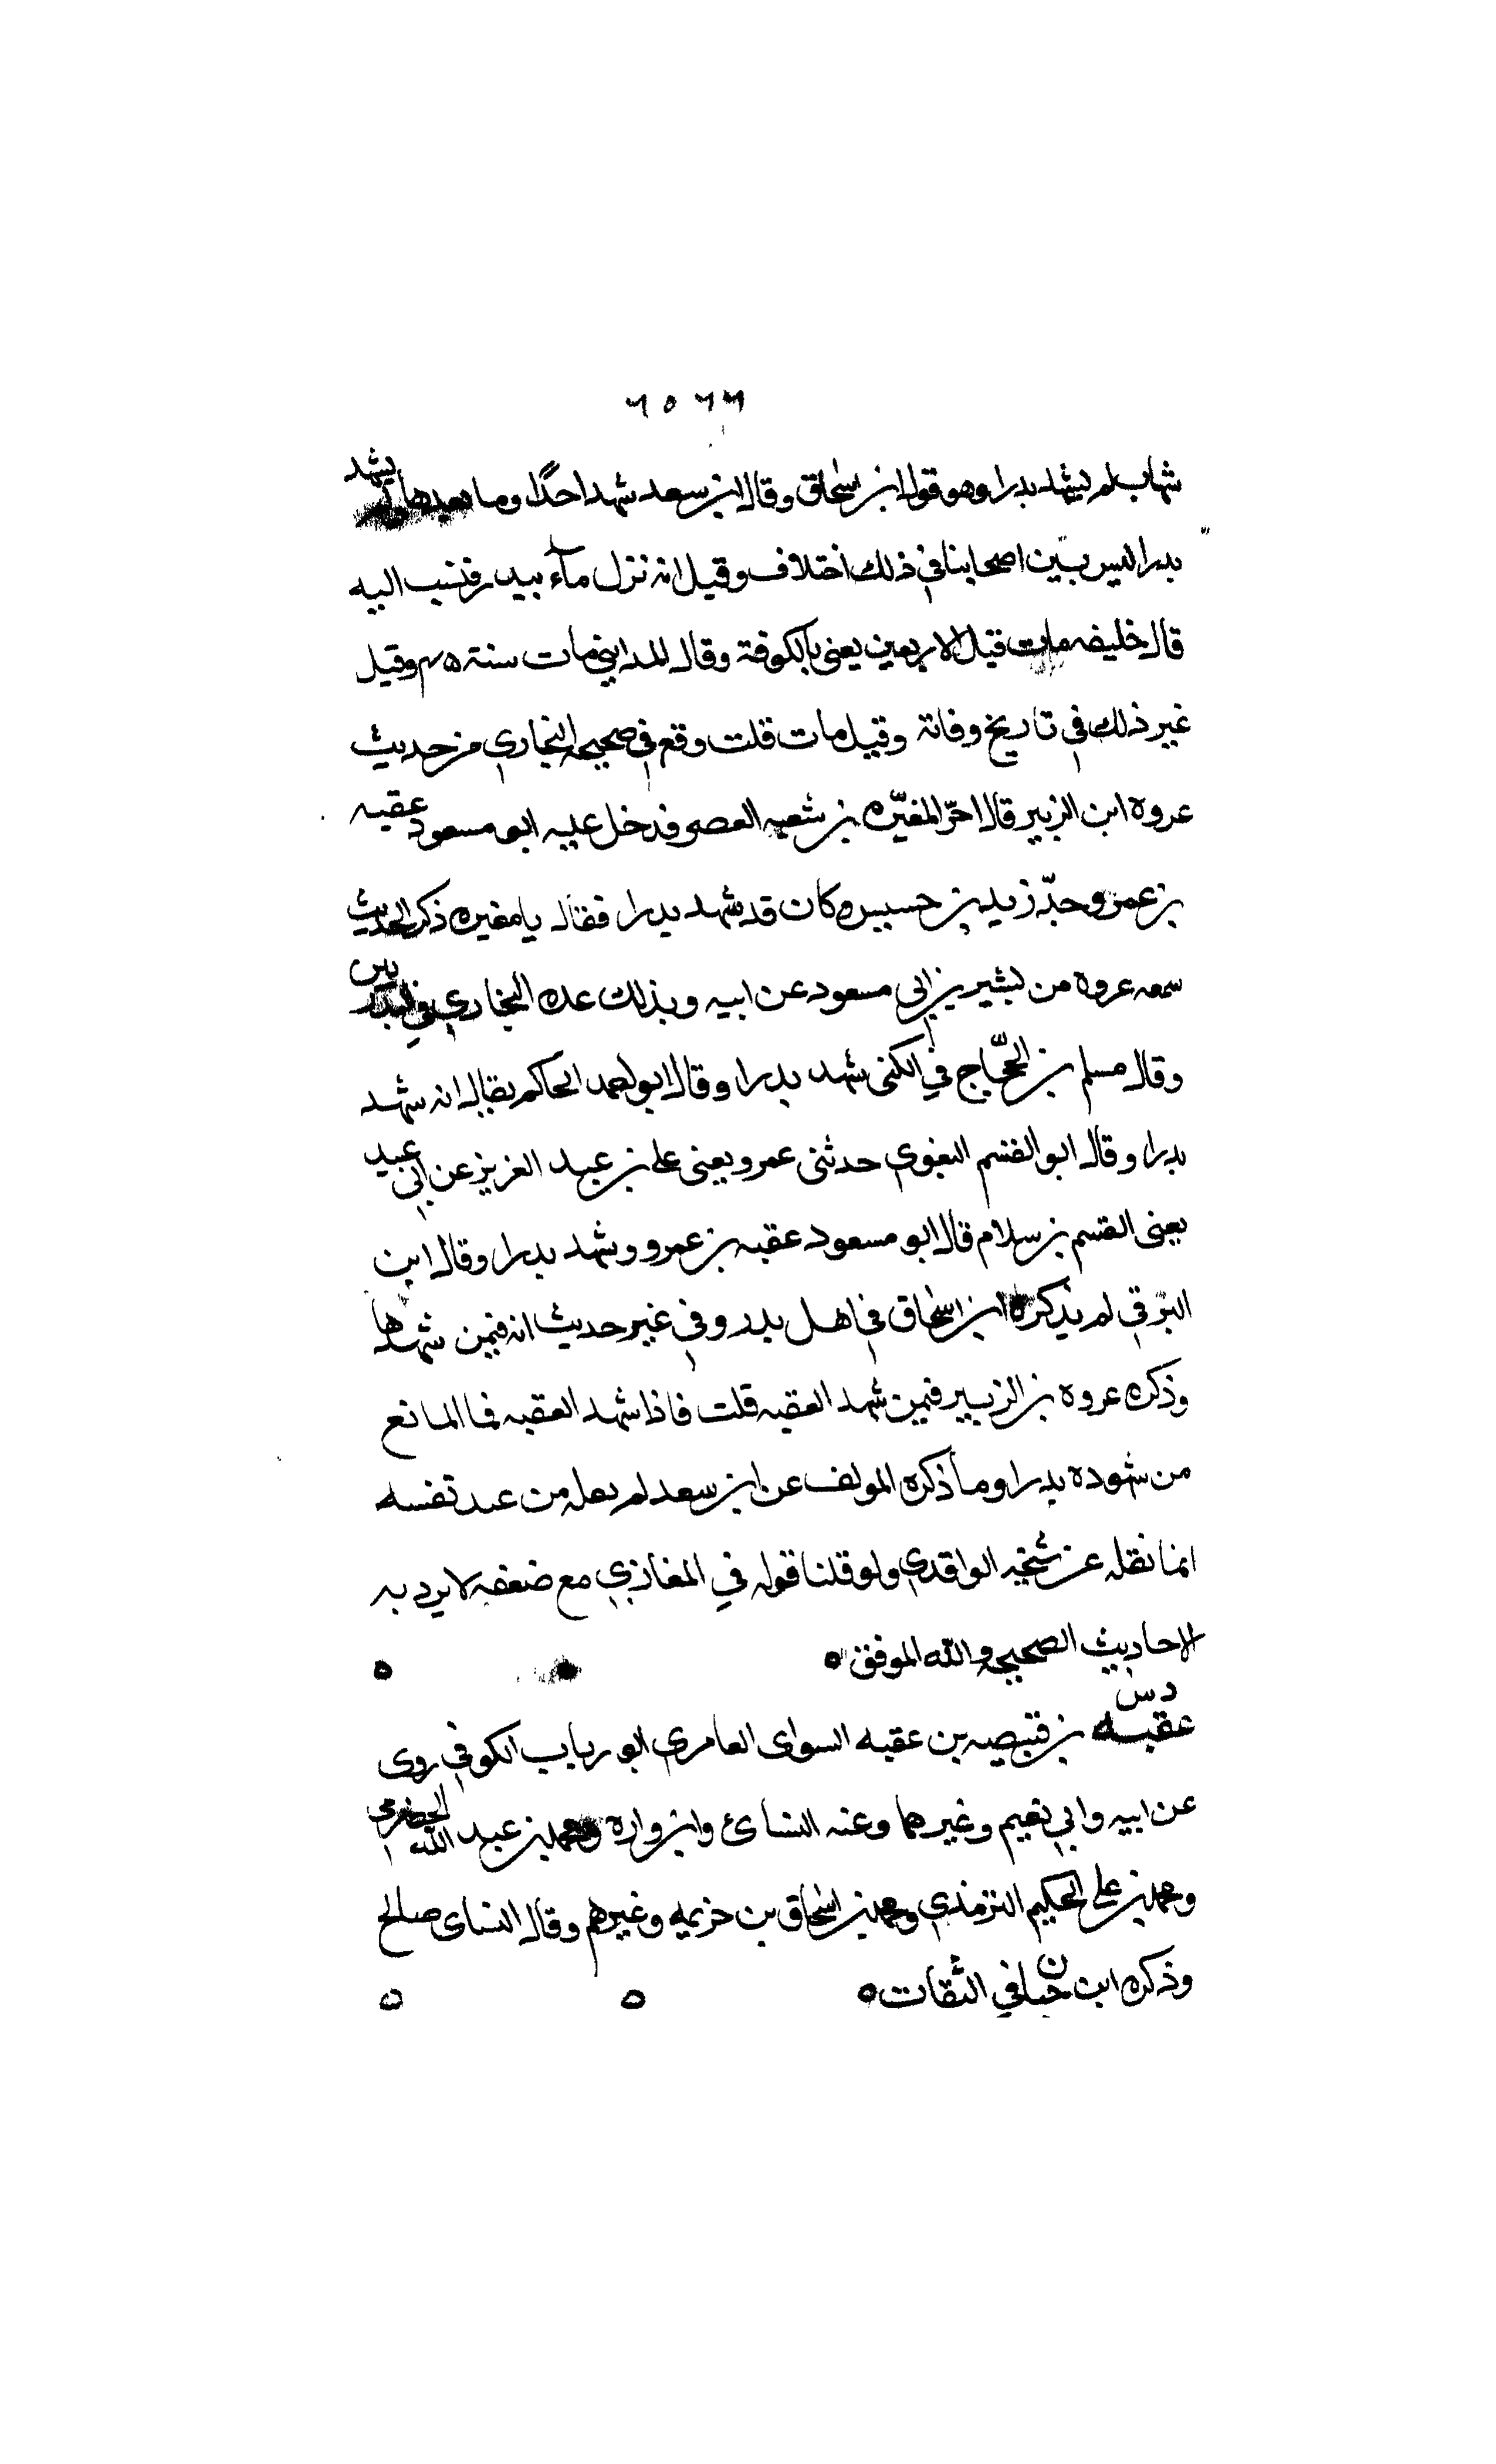 ٢٥٢٢
شهاب لم يشهد بدرا وهو قول ابن اسحاق وقال ابن سعد شهد احدا وما بعدها ولم يشهد
بدرا ليس بين اصحابنا في ذلك اختلاف وقيل انه نزل ماء ببدر فنسب اليه
قال خليفه مات قبل الاربعين يعنى بالكوفة وقال المدايني مات سنة وقيل
غير ذلك في تاريخ وفاتة وقيل مات قلت وقع في صحيح البخاري من حديث
عروه ابن الزبير قال اخر المغيره بن شعبه العصر فدخل عليه ابو مسعود عقبه
بن عمرو جد زيد بن حسن وكان قد شهد بدرا فقال يا مغيره ذكر الحديث
سمعه عروه من بشير بن ابي مسعود عن ابيه وبذلك عده البخاري في البدريين
وقال مسلم بن الحجاج في الكنى شهد بدرا وقال ابو احمد الحاكم يقال انه شهد
بدرا وقال ابو القسم البغوي حدثنى عمرو يعنى على بن عبد العزيز عن ابي عبيد
يعنى القسم بن سلام قال ابو مسعود عقبه بن عمرو وشهد بدرا وقال ابن
البرقي لم يذكره ابن اسحاق في اهل بدر وفي غير حديث انه فيمن شهدها
وذكره عروه بن الزبير فيمن شهد العقبه قلت فاذا شهد العقبه فما المانع
من شهوده بدرا وما ذكره المولف عن ابن سعد لم يقله من عند نفسه
انما نقله عن شيخه الواقدي ولو قلنا قوله في المغازي مع ضعفه لا يرد به
الاحاديث الصحيح والله الموفق ه ه
د س
عقبه بن قبيصه بن عقبه السواى العامري ابو رياب الكوفي روى
عن ابيه وابي نعيم وغيرهما وعنه النسائ وابن واره ومحمد بن عبد الله الحضرمي
ومحمد بن على الحكيم الترمذي ومحمد بن اسحاق بن خزيمه وغيرهم وقال النساى صالح
وذكره ابن حبان في الثقات ه ه ه